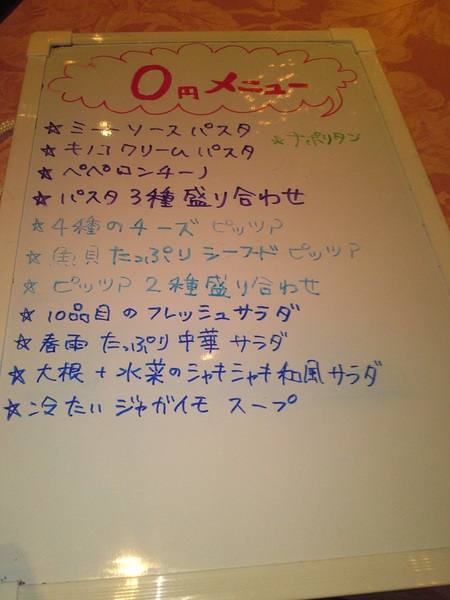 0円メニュー
☆ミートソースパスタ
☆ナポリタン
☆キノコクリームパスタ
☆ペペロンチーノ
☆パスタ3種盛り合わせ
☆4種のチーズピッツァ
☆魚貝たっぷりシーフードピッツァ
☆ピッツァ2種盛り合わせ
☆10品目のフレッシュサラダ
☆春雨たっぷり中華サラダ
☆大根+水菜のシャキシャキ和風サラダ
☆冷たいジャガイモスープ